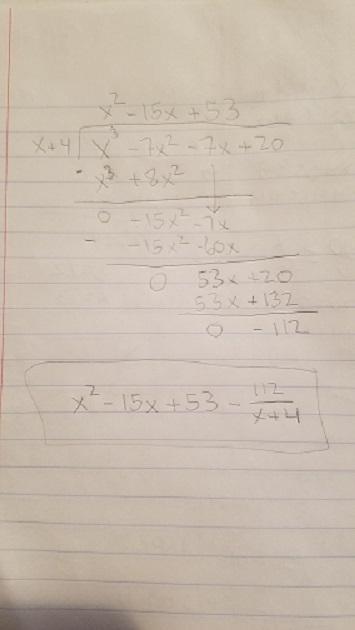 x² - 15x + 53
x+4 √ x³ - 7x² - 7x + 20
- x³ + 8x²
0 -15x² - 7x
- -15x² - 60x
0 53x + 20
53x + 132
0 - 112
x² - 15x + 53 - 112/(x+4)